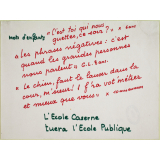 mots d'enfants
"c'est toi qui nous
guettes, ce soir?" x 5 ans
* les phrases négatives: c'est
quand les grandes personnes
nous parlent * C.L. 9 ans.
* Le chien, faut le laisser dans la
cour, m'sieur! I' f'ra vot' métier
et mieux que vous *
L'Ecole Caserne
tuera L'Ecole Publique